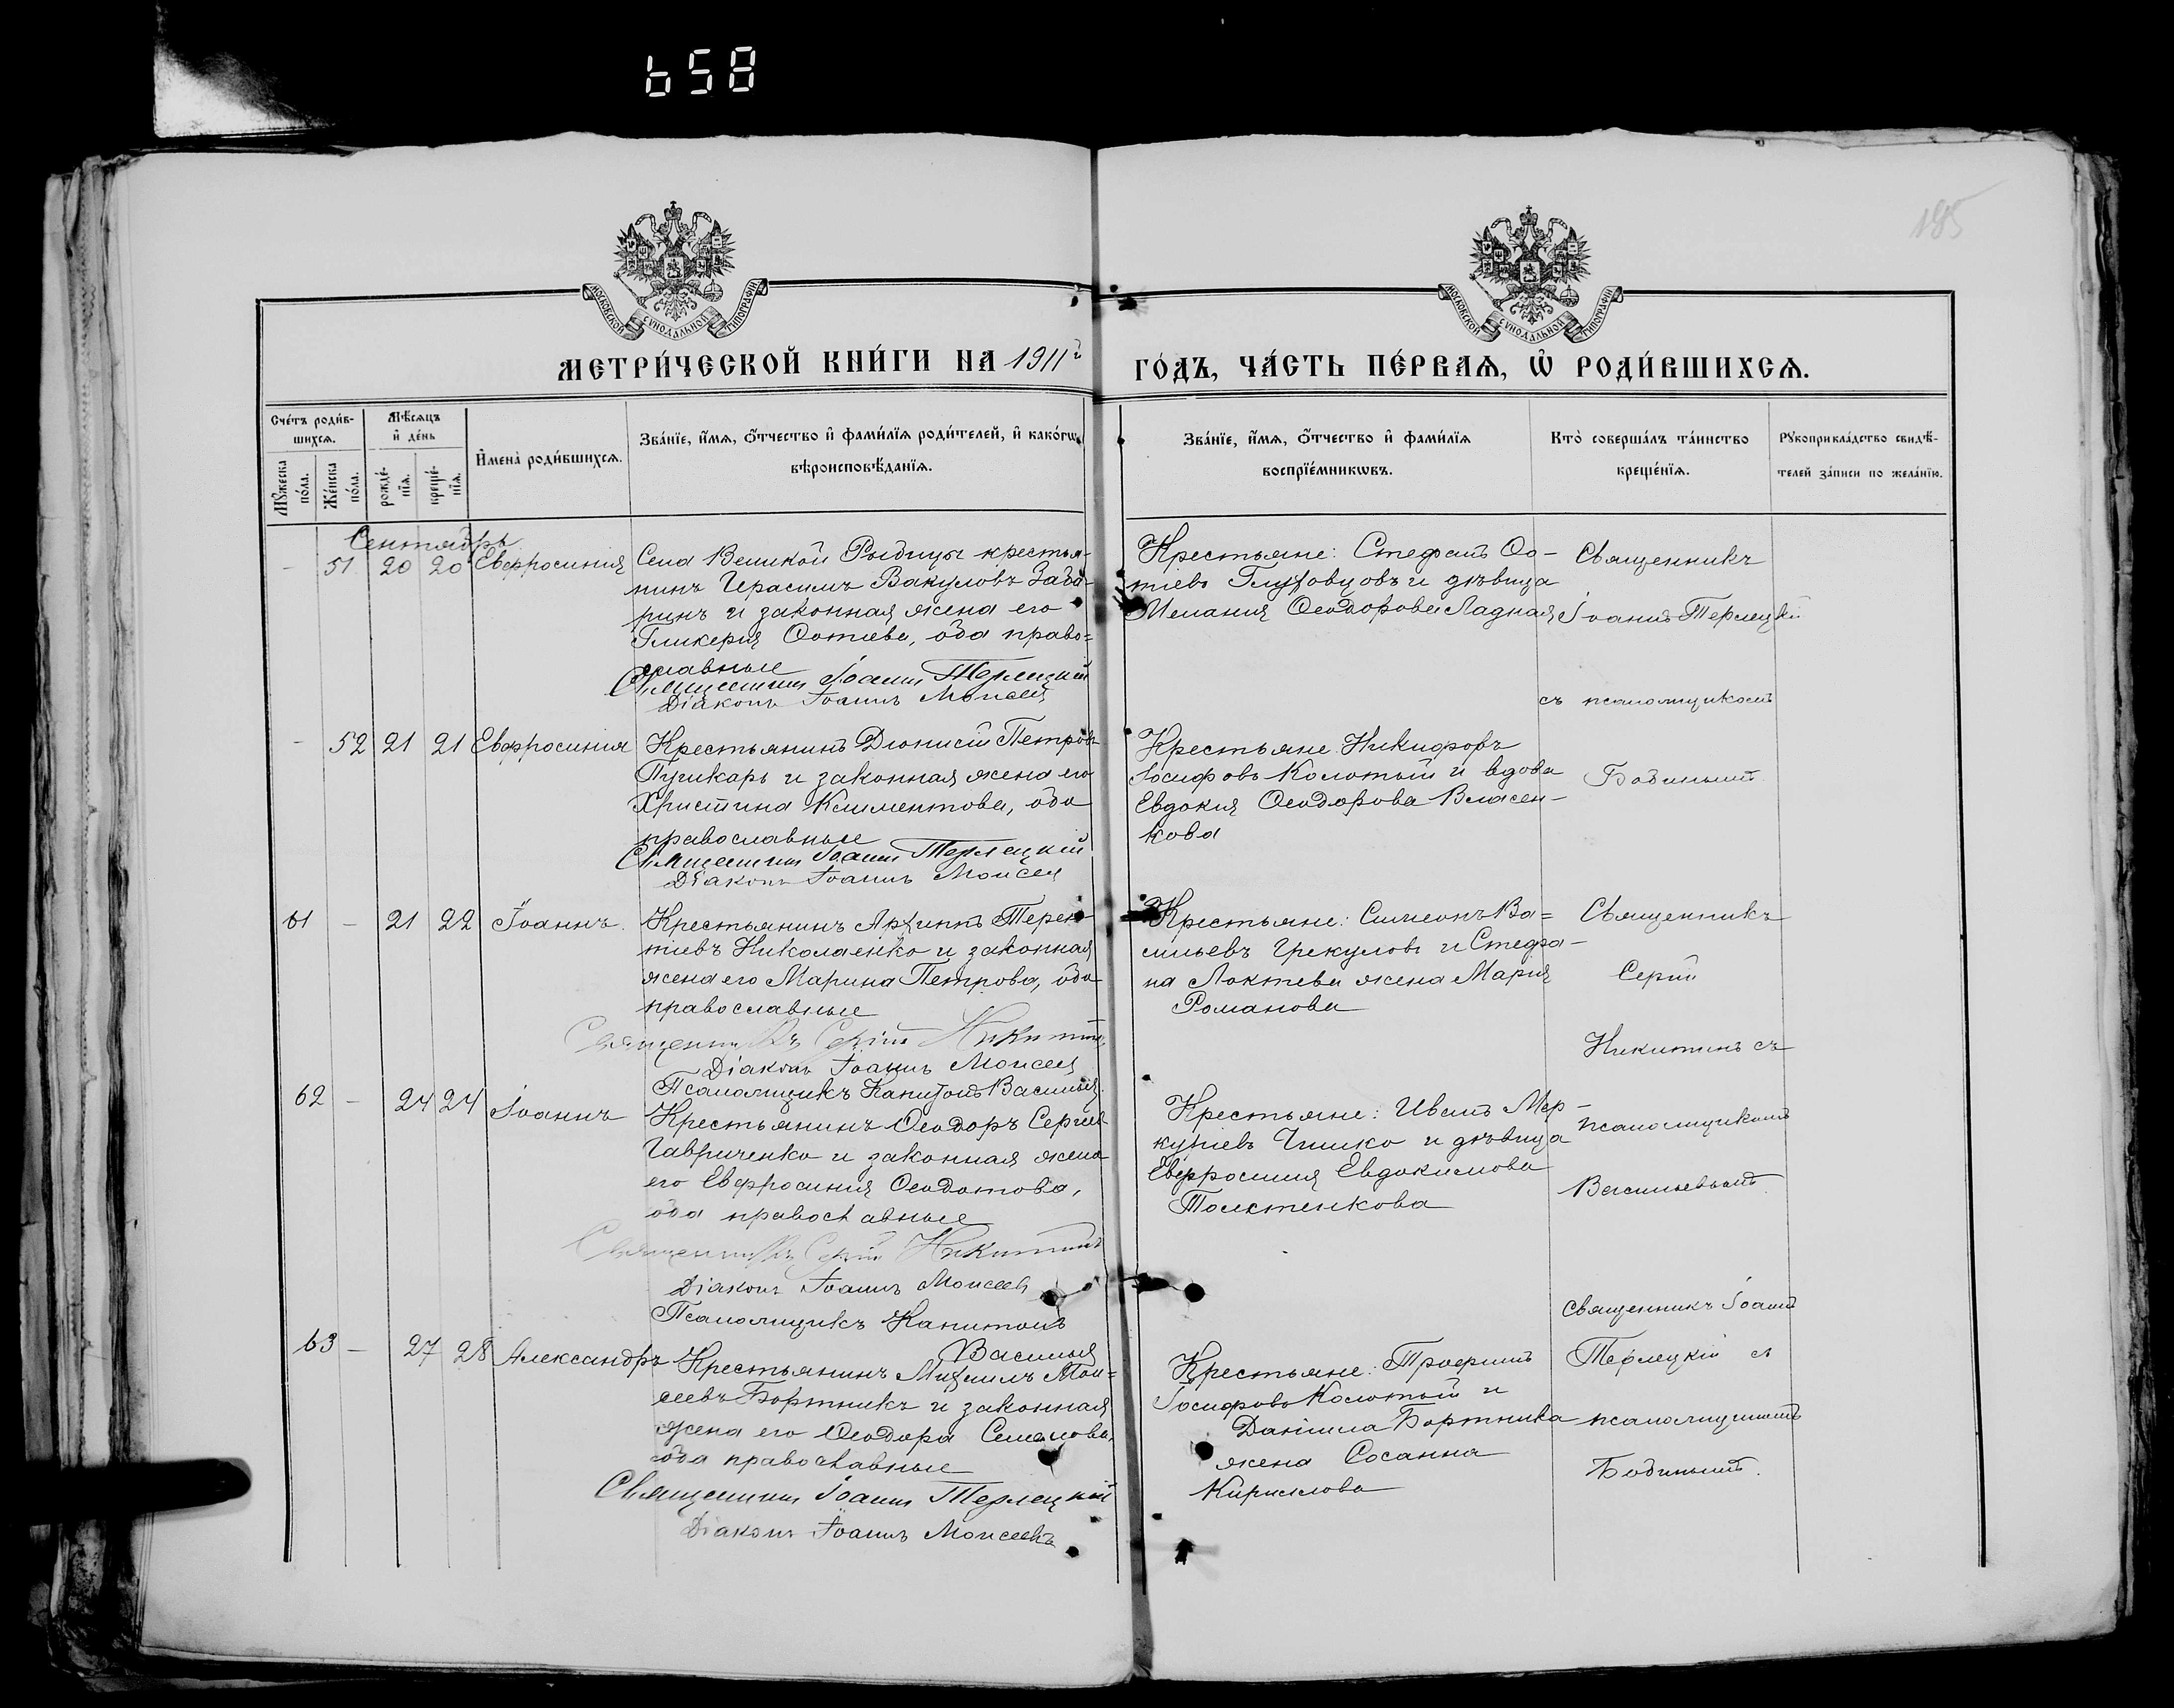 658
185
МОСКОВСКОЙ СУНОДАЛЬНОЙ ТИПОГРАФІИ
МОСКОВСКОЙ СУНОДАЛЬНОЙ ТИПОГРАФІИ
МЕТРИ́ЧЕСКОЙ КНИ́ГИ НА 1911 г
ГО́ДЪ, ЧА́СТЬ ПЕ́РВАѦ, Ѡ҆ РОДИ́ВШИХСѦ.
Сче́тъ роди́в-
шихсѧ.
Мꙋ́жеска по́ла.
Же́нска по́ла.
Мѣ́сѧцъ
и҆ де́нь
рожде́-
нїѧ.
креще́-
нїѧ.
И҆мена̀ роди́вшихсѧ.
Зва́нїе, и҆́мѧ, ѻ҆́тчество и҆ фами́лїѧ роди́телей, и҆ како́гѡ
вѣроисповѣ́данїѧ.
Зва́нїе, и҆́мѧ, ѻ҆́тчество и҆ фами́лїѧ
воспрїе́мникѡвъ.
Кто̀ соверша́лъ та́инство
креще́нїѧ.
Рꙋкоприкла́дство свидѣ́-
телей за́писи по жела́нїю.
Сентябрь
– 51 20 20 Евфросинія
Села Великой Рыбицы крестья-
нинъ Герасимъ Вакуловъ Заба-
ринъ и законная жена его
Гликерія Фотіева, оба право=
славные
Священникъ Іоаннъ Терлецкій
Діаконъ Іоаннъ Моисеев
Крестьяне: Стефанъ Фо-
тіевъ Глуховцовъ и дѣвица
Меланія Ѳеодорова Ладная
Священникъ
Іоаннъ Терлецкій
съ псаломщикомъ
– 52 21 21 Евфросинія
Крестьянинъ Діонисій Петровъ
Пушкарь и законная жена его
Христина Климентова, оба
православные
Священникъ Іоаннъ Терлецкій
Діаконъ Іоаннъ Моисеев
Крестьяне: Никифоръ
Іосифовъ Колотый и вдова
Евдокія Ѳеодорова Власен-
кова
Бабинымъ
61 – 21 22 Іоаннъ
Крестьянинъ Архиппъ Терен-
тіевъ Николаенко и законная
жена его Марина Петрова, оба
православные
Священникъ Сергій Никитинъ
Діаконъ Іоаннъ Моисеев
Псаломщикъ Капитонъ Васильев
Крестьяне: Симеонъ Ва=
сильевъ Грекуловъ и Стефа-
на Локтева жена Марія
Романова
Священникъ
Сергій
Никитинъ съ
псаломщикомъ
Васильевымъ
62 – 24 24 Іоаннъ
Крестьянинъ Ѳеодоръ Сергіевъ
Гавриченко и законная жена
его Евфросинія Ѳеодотова,
оба православные
Священникъ Сергій Никитинъ
Діаконъ Іоаннъ Моисеев
Псаломщикъ Капитонъ
Васильев
Крестьяне: Иванъ Мер-
куріевъ Чишко и дѣвица
Евфросинія Евдокимова
Толстенкова
63 – 27 28 Александръ
Крестьянинъ Михаилъ Мои=
сеевъ Бортникъ и законная
жена его Ѳеодора Семенова,
оба православные
Священникъ Іоаннъ Терлецкій
Діаконъ Іоаннъ Моисеевъ
Крестьяне: Трофимъ
Іосифовъ Колотый и
Даніила Бортника
жена Сосанна
Кириллова
Священникъ Іоаннъ
Терлецкій съ
псаломщикомъ
Бабинымъ.